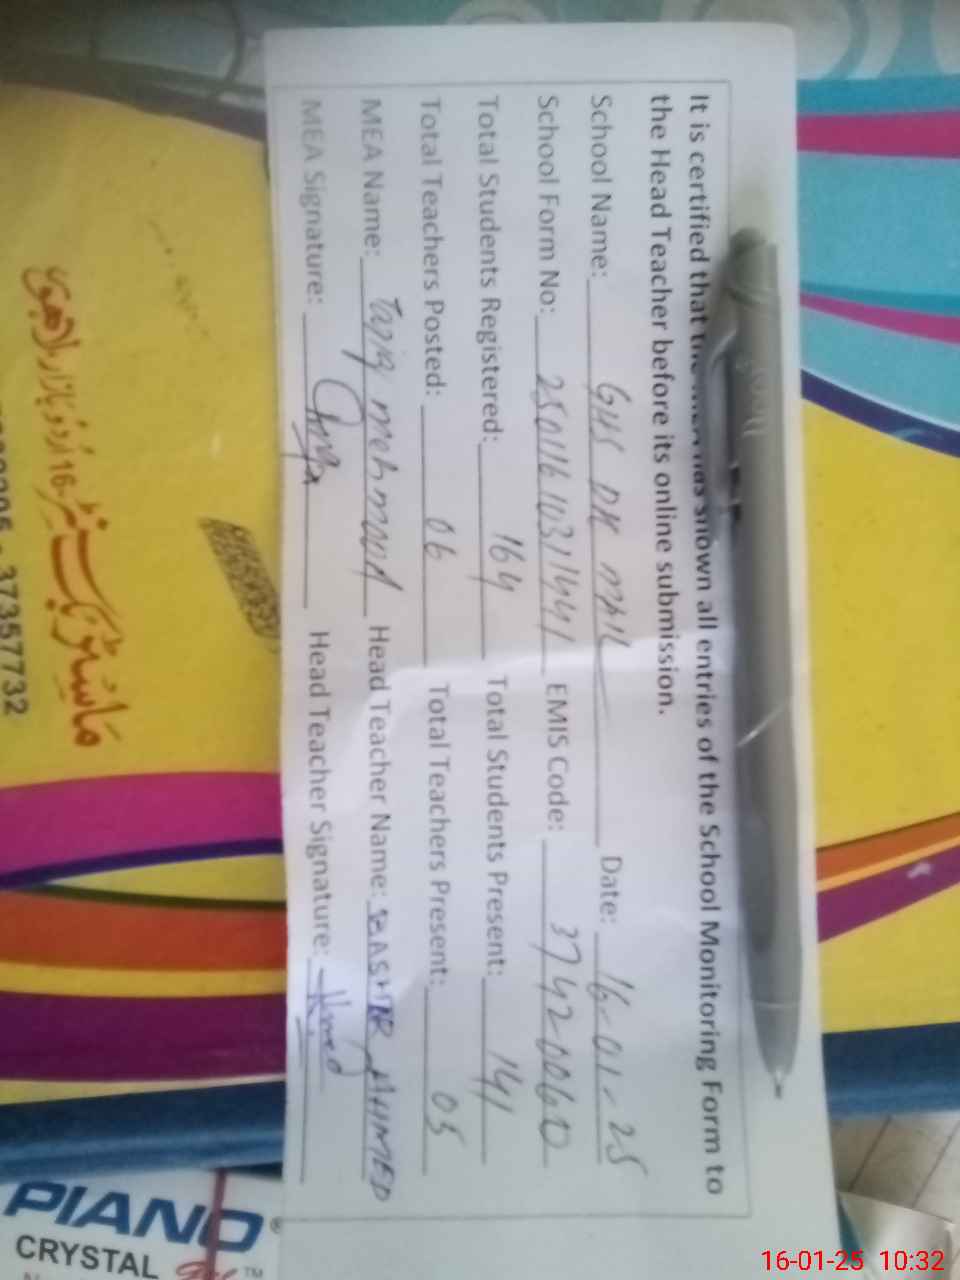 It is certified that the MEA has shown all entries of the School Monitoring Form to
the Head Teacher before its online submission.
School Name: GHS DK Date: 16-01-25
School Form No: 25011610311441 EMIS Code: 37420060
Total Students Registered: 164 Total Students Present: 141
Total Teachers Posted: 06 Total Teachers Present: 05
MEA Name: Tariq mehmood Head Teacher Name: BASHIR AHMED
MEA Signature: Head Teacher Signature:
37357732
PIANO®
CRYSTAL
TM
16-01-25 10:32